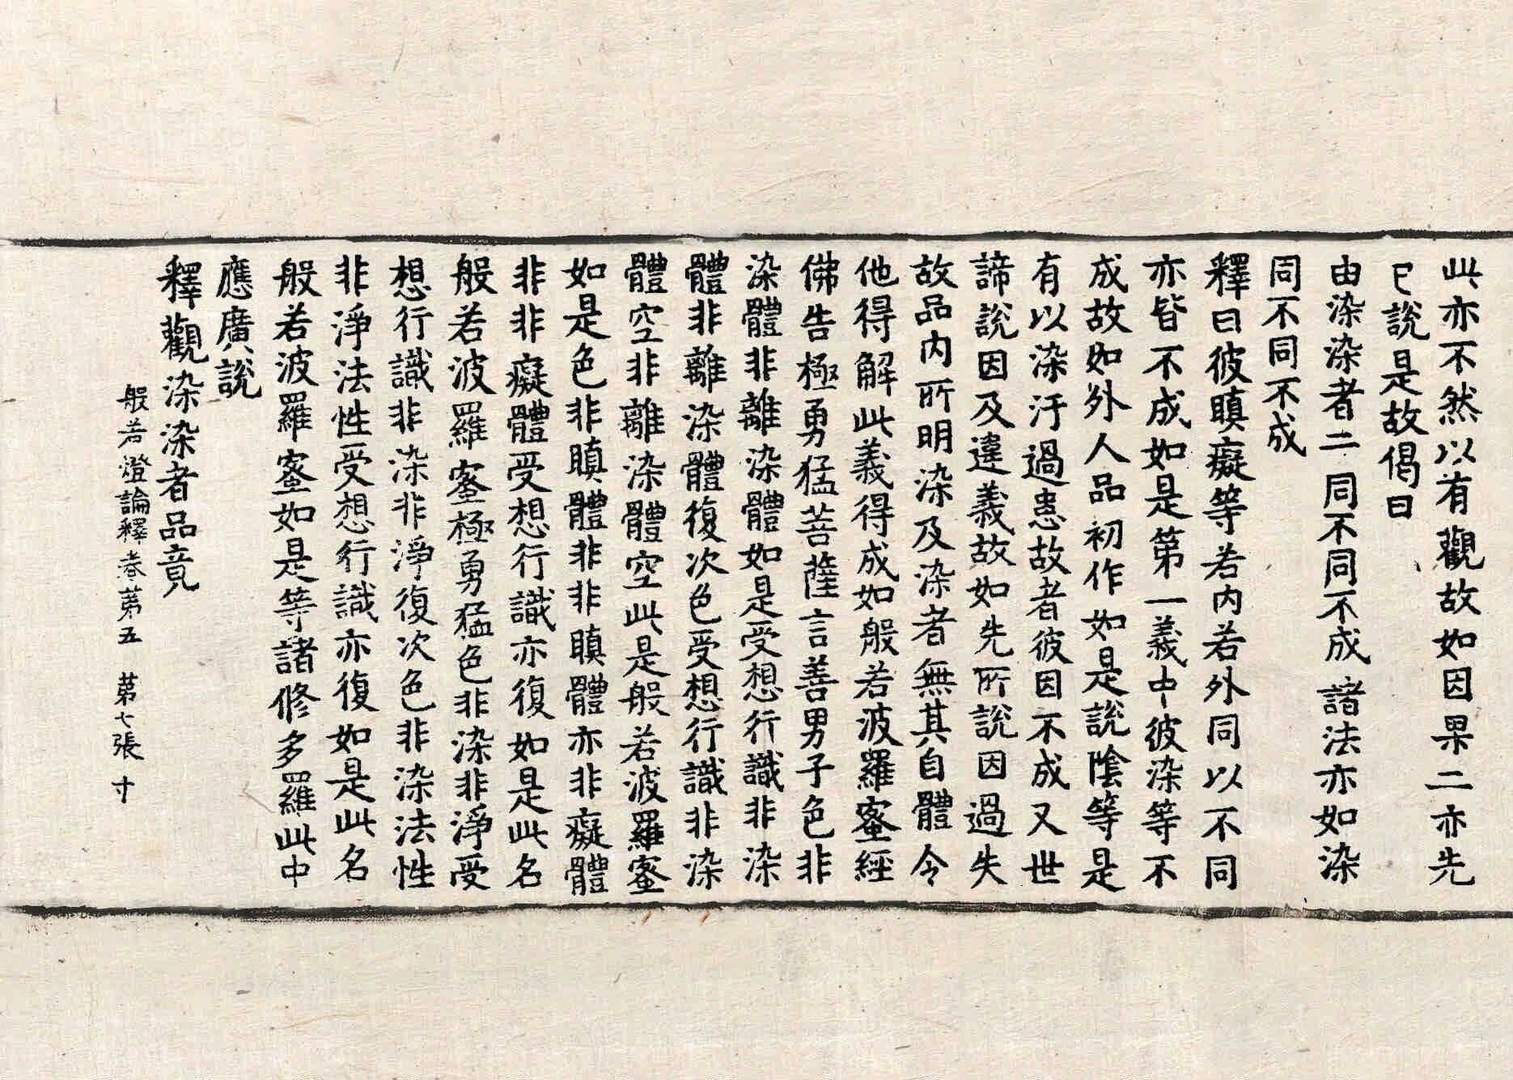 此亦不然以有觀故如因果二亦先
已說是故偈曰
由染染者二同不同不成諸法亦如染
同不同不成
釋曰彼瞋癡等若內若外同以不同
亦皆不成如是第一義中彼染等不
成故如外人品初作如是說陰等是
有以染汙過患故者彼因不成又世
諦說因及違義故如先所說因過失
故品內所明染及染者無其自體令
他得解此義得成如般若波羅蜜經
佛告極勇猛菩薩言善男子色非
染體非離染體如是受想行識非染
體非離染體復次色受想行識非染
體空非離染體空此是般若波羅蜜
如是色非瞋體非非瞋體亦非癡體
非非癡體受想行識亦復如是此名
般若波羅蜜極勇猛色非染非淨受
想行識非染非淨復次色非染法性
非淨法性受想行識亦復如是此名
般若波羅蜜如是等諸修多羅此中
應廣說
釋觀染染者品竟
般若燈論釋卷第五 第七張 寸